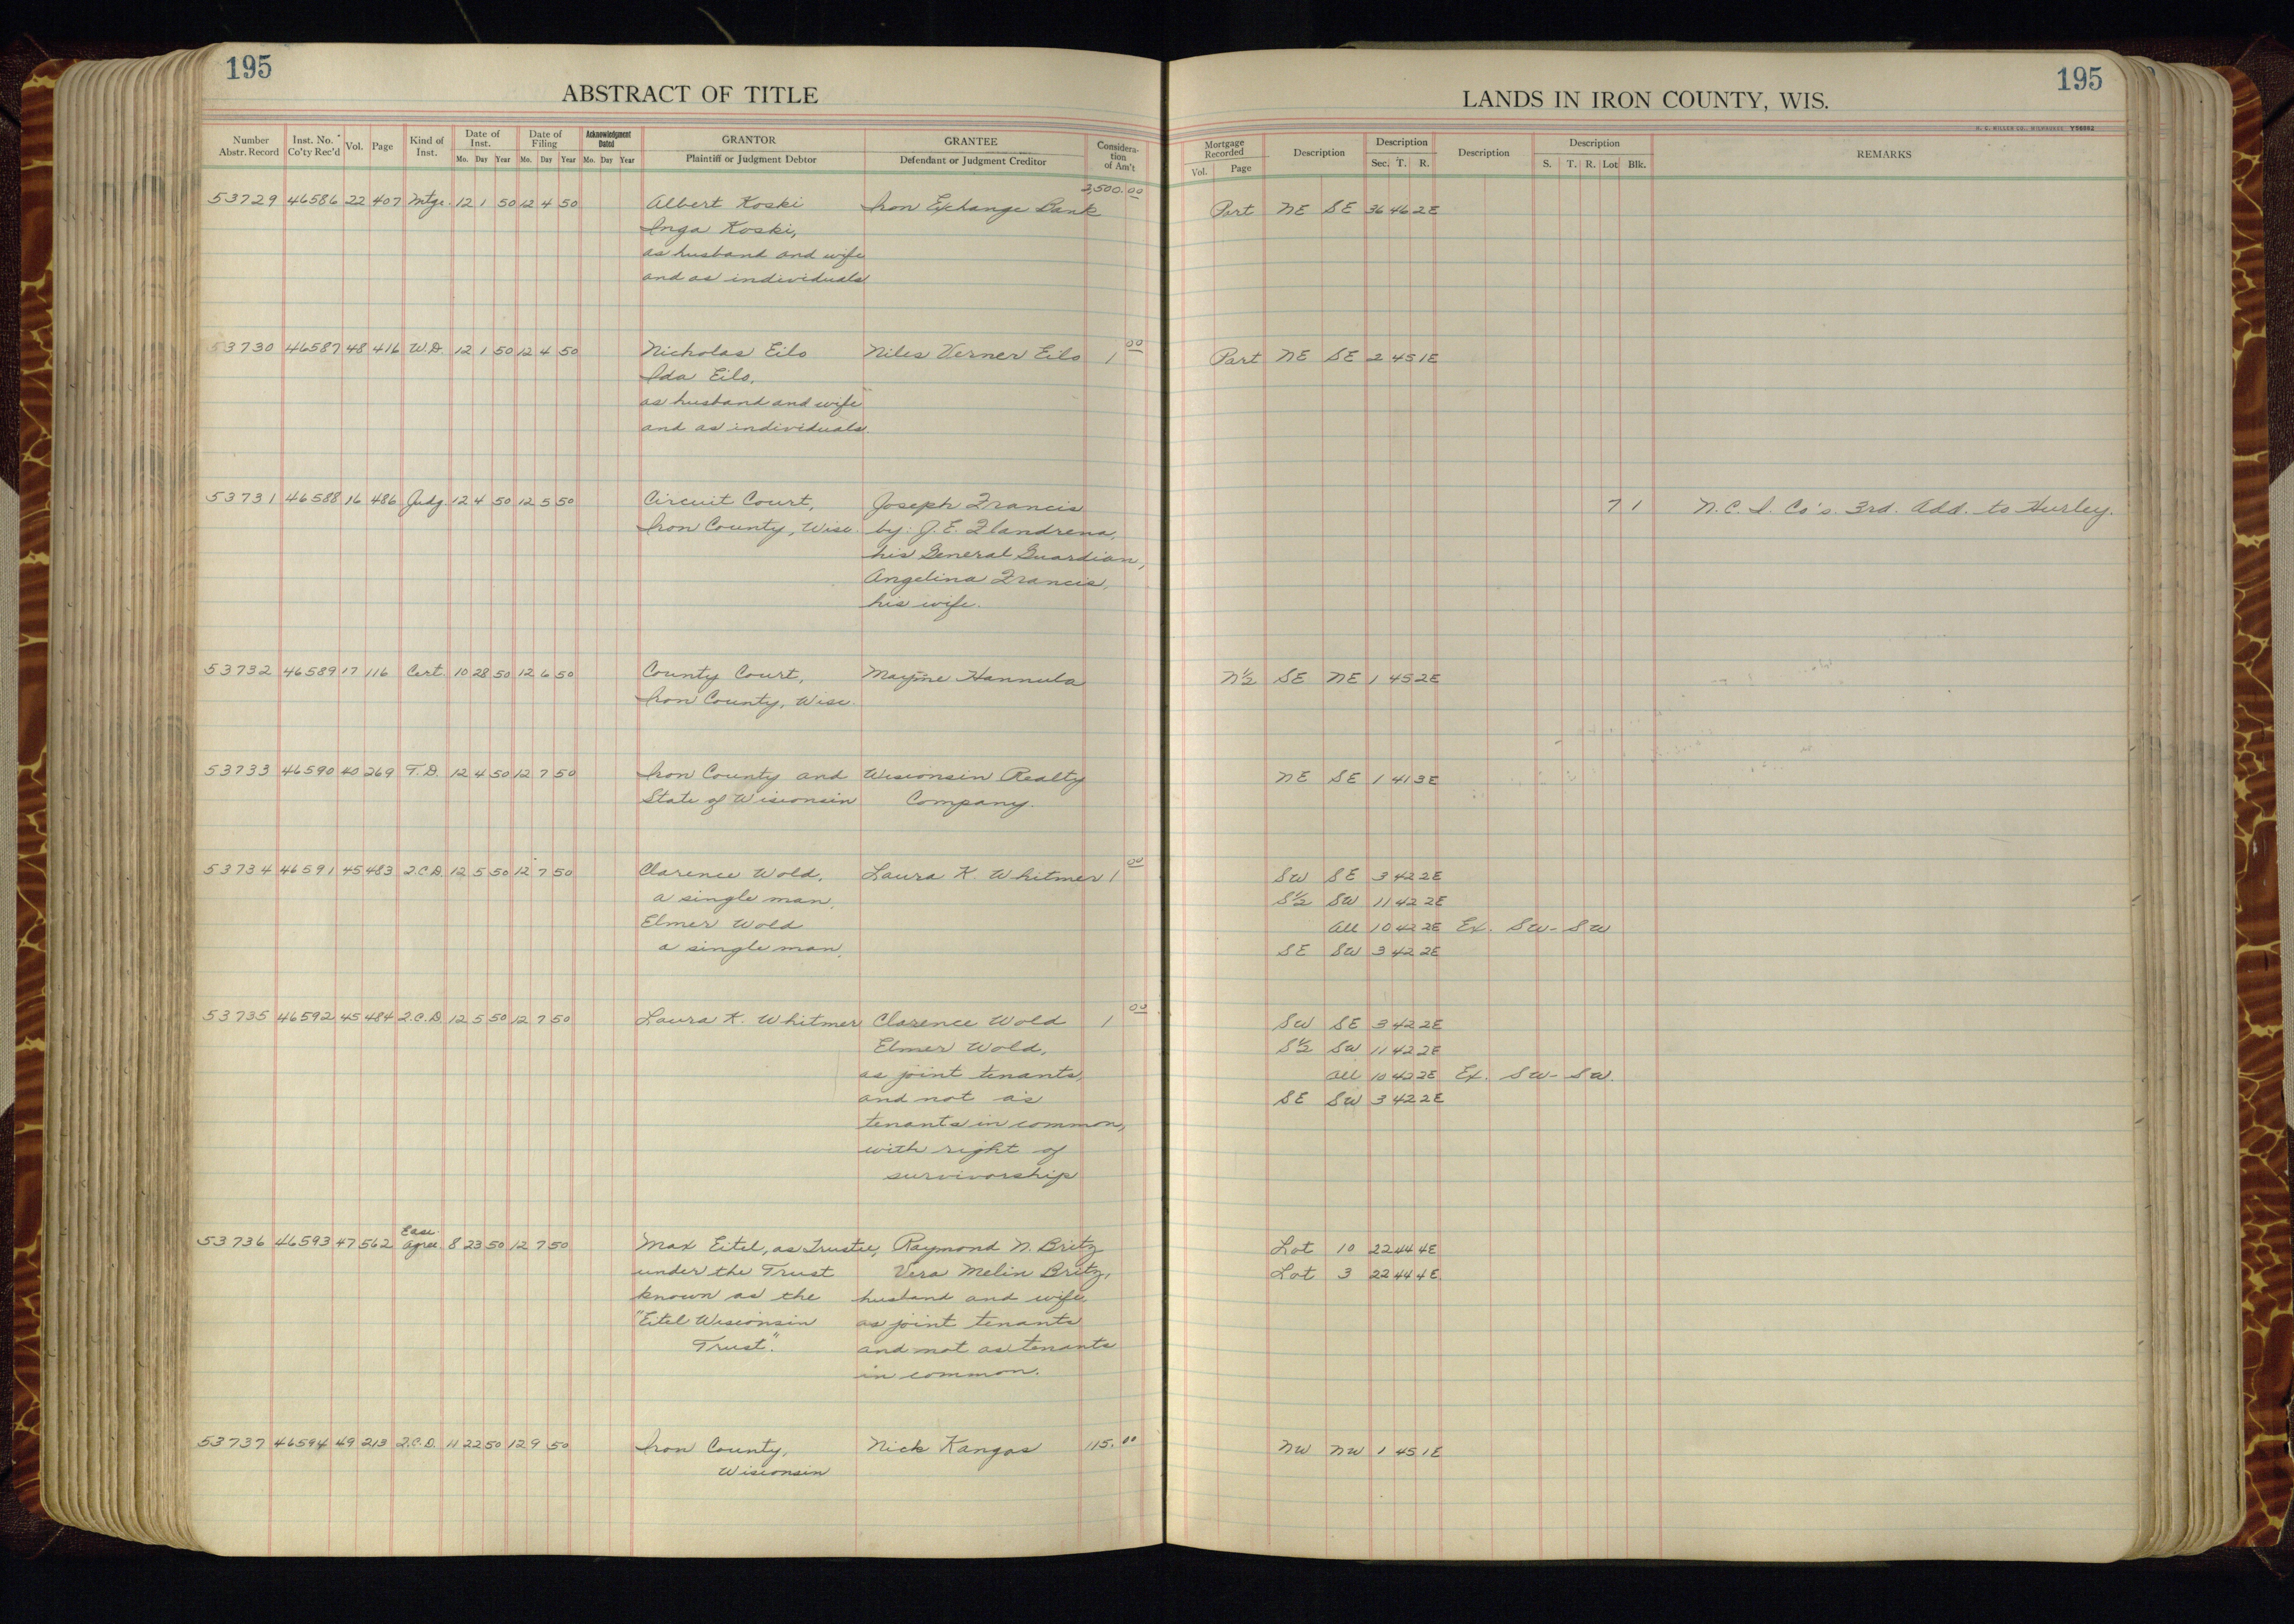 195
ABSTRACT OF TITLE
Number Abstr. Record | Inst. No. Co'ty Rec'd | Vol. | Page | Kind of Inst. | Date of Inst. Mo. Day Year | Date of Filing Mo. Day Year | Acknowledgment Dated Mo. Day Year | GRANTOR Plaintiff or Judgment Debtor | GRANTEE Defendant or Judgment Creditor | Consideration of Am't
195
LANDS IN IRON COUNTY, WIS.
Mortgage Recorded Vol. Page | Description | Description Sec. T. R. | Description | Description S. T. R. Lot Blk. | REMARKS
53729 46586 22 407 Mtge. 12 1 50 12 4 50 Albert Koski Iron Exchange Bank 3,500.00 Part NE SE 36 46 2E
Inga Koski,
as husband and wife
and as individuals
53730 46587 48 416 W.D. 12 1 50 12 4 50 Nicholas Eilo Niles Verner Eilo 1 00 Part NE SE 2 45 1E
Ida Eilo,
as husband and wife
and as individuals.
53731 46588 16 486 Judg. 12 4 50 12 5 50 Circuit Court, Joseph Francis 7 1 N.C.I. Co's. 3rd. Add. to Hurley.
Iron County, Wisc. by: J.E. Flandrena,
his General Guardian,
Angelina Francis,
his wife.
53732 46589 17 116 Cert. 10 28 50 12 6 50 County Court, Mayme Hannula N½ SE NE 1 45 2E
Iron County, Wisc.
53733 46590 40 269 T.D. 12 4 50 12 7 50 Iron County and Wisconsin Realty NE SE 1 41 3E
State of Wisconsin Company.
53734 46591 45 483 Q.C.D. 12 5 50 12 7 50 Clarence Wold, Laura K. Whitmer 1 00 SW SE 3 42 2E
a single man, S½ SW 11 42 2E
Elmer Wold All 10 42 2E Ex. SW-SW
a single man, SE SW 3 42 2E
53735 46592 45 484 Q.C.D. 12 5 50 12 7 50 Laura K. Whitmer Clarence Wold 1 00 SW SE 3 42 2E
Elmer Wold, S½ SW 11 42 2E
as joint tenants, All 10 42 2E Ex. SW-SW.
and not as SE SW 3 42 2E
tenants in common,
with right of
survivorship
53736 46593 47 562 Ease. Agree. 8 23 50 12 7 50 Max Eitel, as Trustee, Raymond N. Britz Lot 10 22 44 4E
under the Trust Vera Melin Britz, Lot 3 22 44 4E
known as the husband and wife,
"Eitel Wisconsin as joint tenants
Trust". and not as tenants
in common.
53737 46594 49 213 Q.C.D. 11 22 50 12 9 50 Iron County, Nick Kangas 115.00 NW NW 1 45 1E
Wisconsin